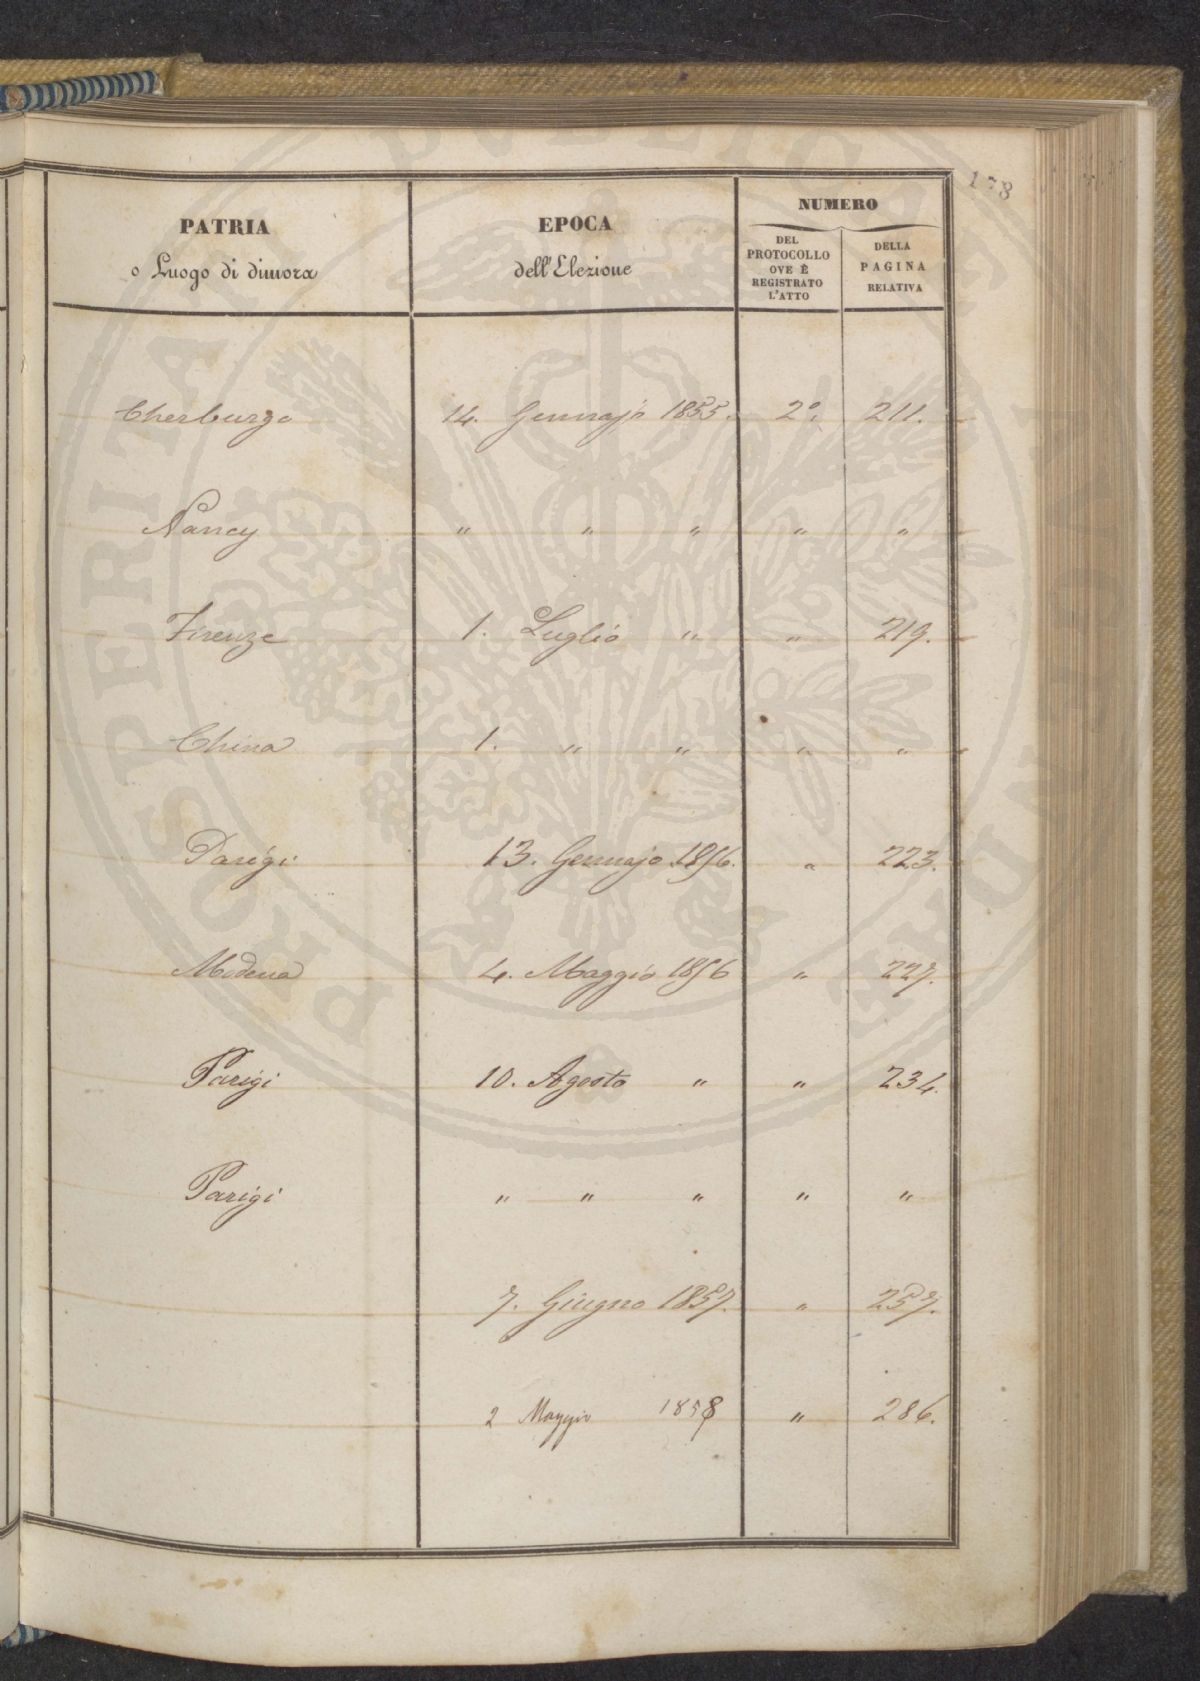 178
PATRIA
o Luogo di dimora
EPOCA
dell'Elezione
NUMERO
DEL
PROTOCOLLO
OVE È
REGISTRATO
L'ATTO
DELLA
PAGINA
RELATIVA
Cherburgo 14. Gennajo 1855. 2º. 211.
Nancy " " " " "
Firenze 1. Luglio " " 219.
China 1. " " " "
Parigi 13. Gennajo 1856. " 223.
Modena 4. Maggio 1856 " 227.
Parigi 10. Agosto " " 234.
Parigi " " " " "
7. Giugno 1857. " 257.
2 Maggio 1858 " 286.
PROSPERITATI PUBLICAE